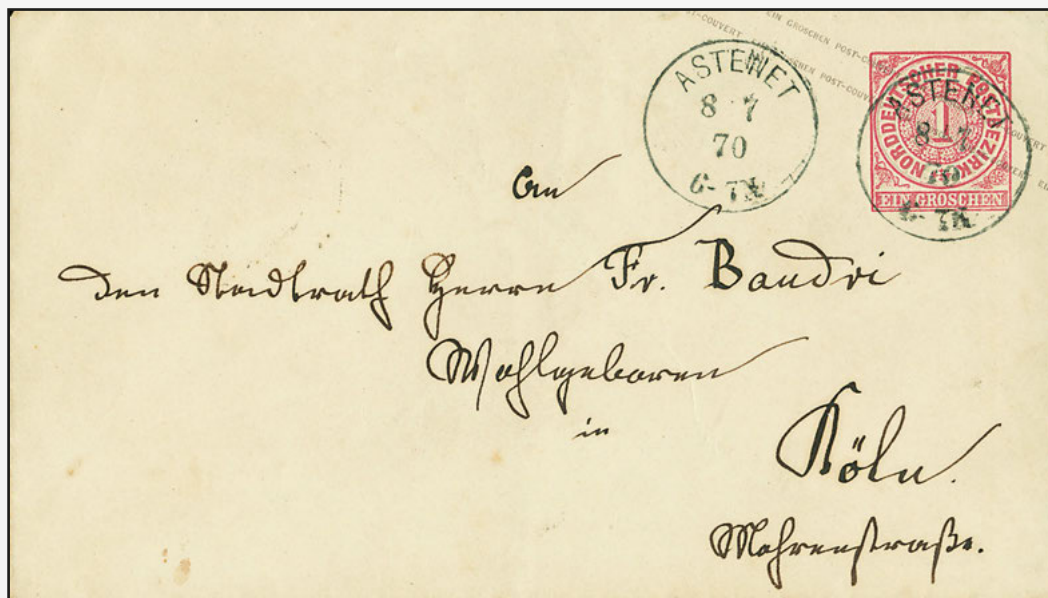 EIN GROSCHEN POST-COUVERT EIN GROSCHEN POST-COUVERT
ASTENET
8 7
70
6-7N
NORDDEUTSCHER POSTBEZIRK
1
EIN GROSCHEN
ASTENET
8 7
70
6-7N
An
den Stadtrath Herrn Fr. Baudri
Wohlgeboren
in
Köln.
Mohrenstraße.